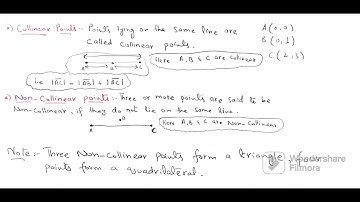 1) Collinear Points:- Points lying on the same line are
called collinear points.
A (0,0)
B (0,1)
C (2,3)
A B C
Here A, B & C are Collinear
i.e. |AC| = |AB| + |BC|
2) Non-Collinear points:- Three or more points are said to be
Non-collinear, if they do not lie on the same line.
B
A C
Here A, B & C are Non-Collinear
Note:- Three Non-Collinear points form a triangle & four
points form a quadrilateral.
Wondershare
Filmora